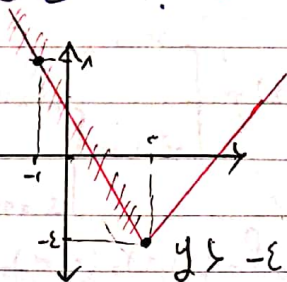 ٨
-١
٣
-٤
y > -٤